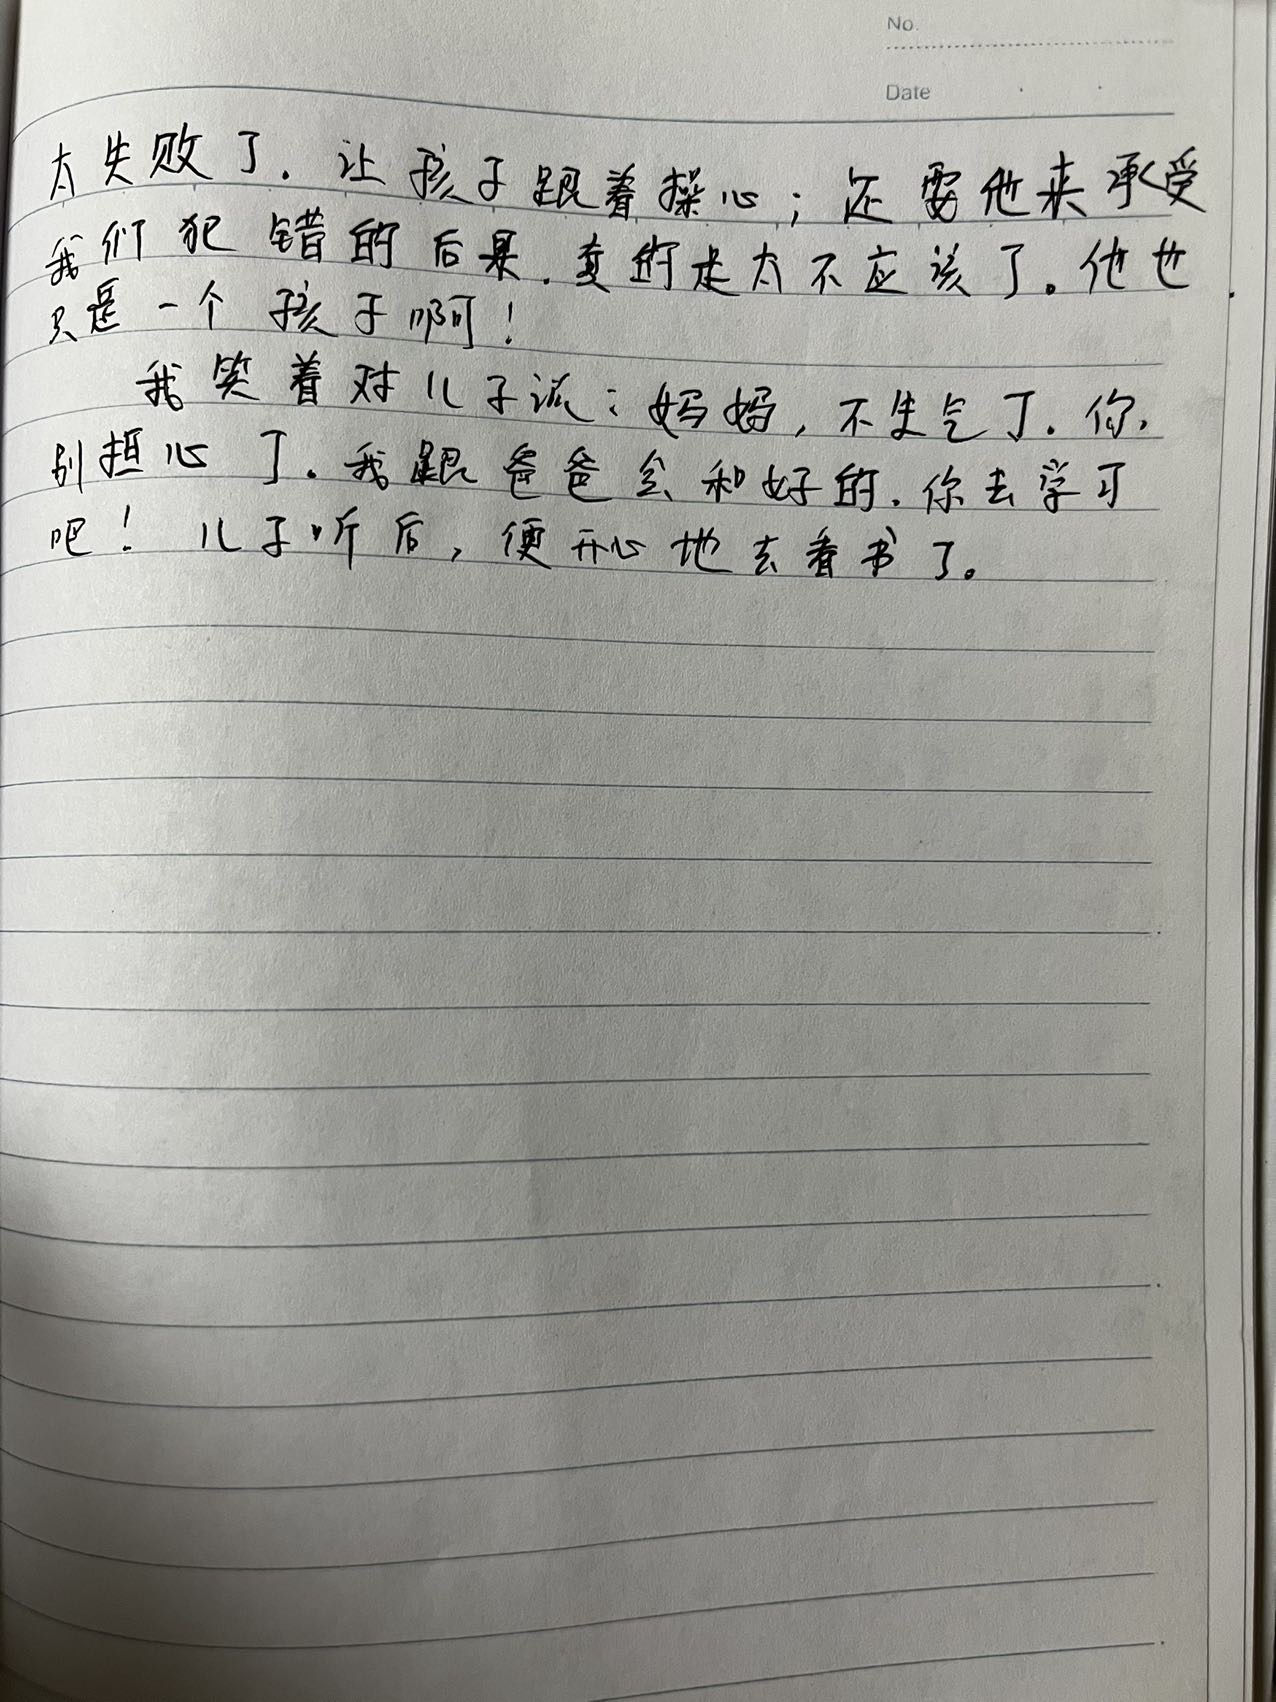 No.
Date
太失败了.让孩子跟着操心；还要他来承受
我们犯错的后果.真的是太不应该了。他也
只是一个孩子啊！
我笑着对儿子说：妈妈，不生气了.你,
别担心了.我跟爸爸会和好的.你去学习
吧！儿子听后，便开心地去看书了。